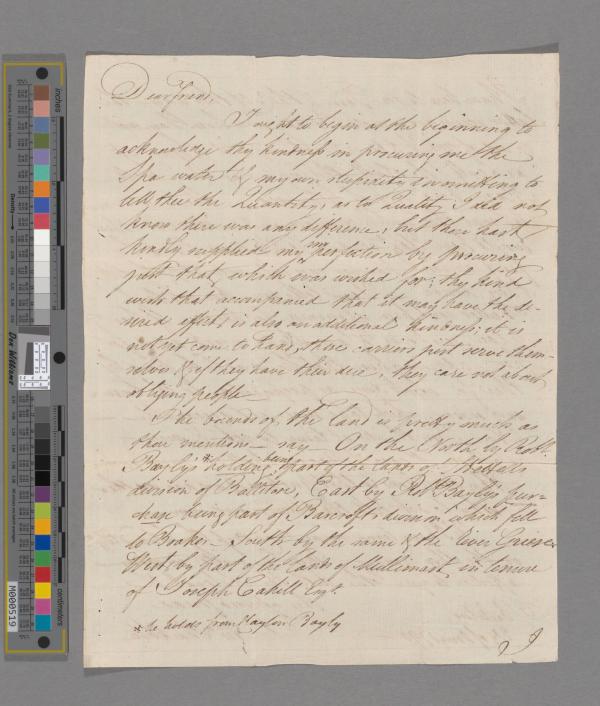 Dear friend,
I ought to begin at the beginning to
acknowledge thy kindness in procuring me the
Spa water & my own stupidity in omitting to
tell thee the Quantity, as to Quality I did not
know there was any difference, but thou hast
kindly supplied my imperfection by procuring
just that which was wished for; thy kind
wish that accompanied that it may have the de-
sired effect, is also an additional kindness; it is
not yet come to hand, these carriers just serve them-
selves & if they have their due, they care not about
obliging people—
The bounds of the land is pretty much as
thou mentions— say— On the North by Robt.
Bayly's * holding being part of the lands of
division of Ballitore, East by Robt. Bayly's pur-
chase being part of Barcroft's division, which fell
to Brooke— South by the same & the river Griese
West, by part of the lands of Mullimast, in tenure
of Joseph Cahill Esqr.
* he holds from Clayton Bayly
I
inches
centimeters
Don Williams
M000519